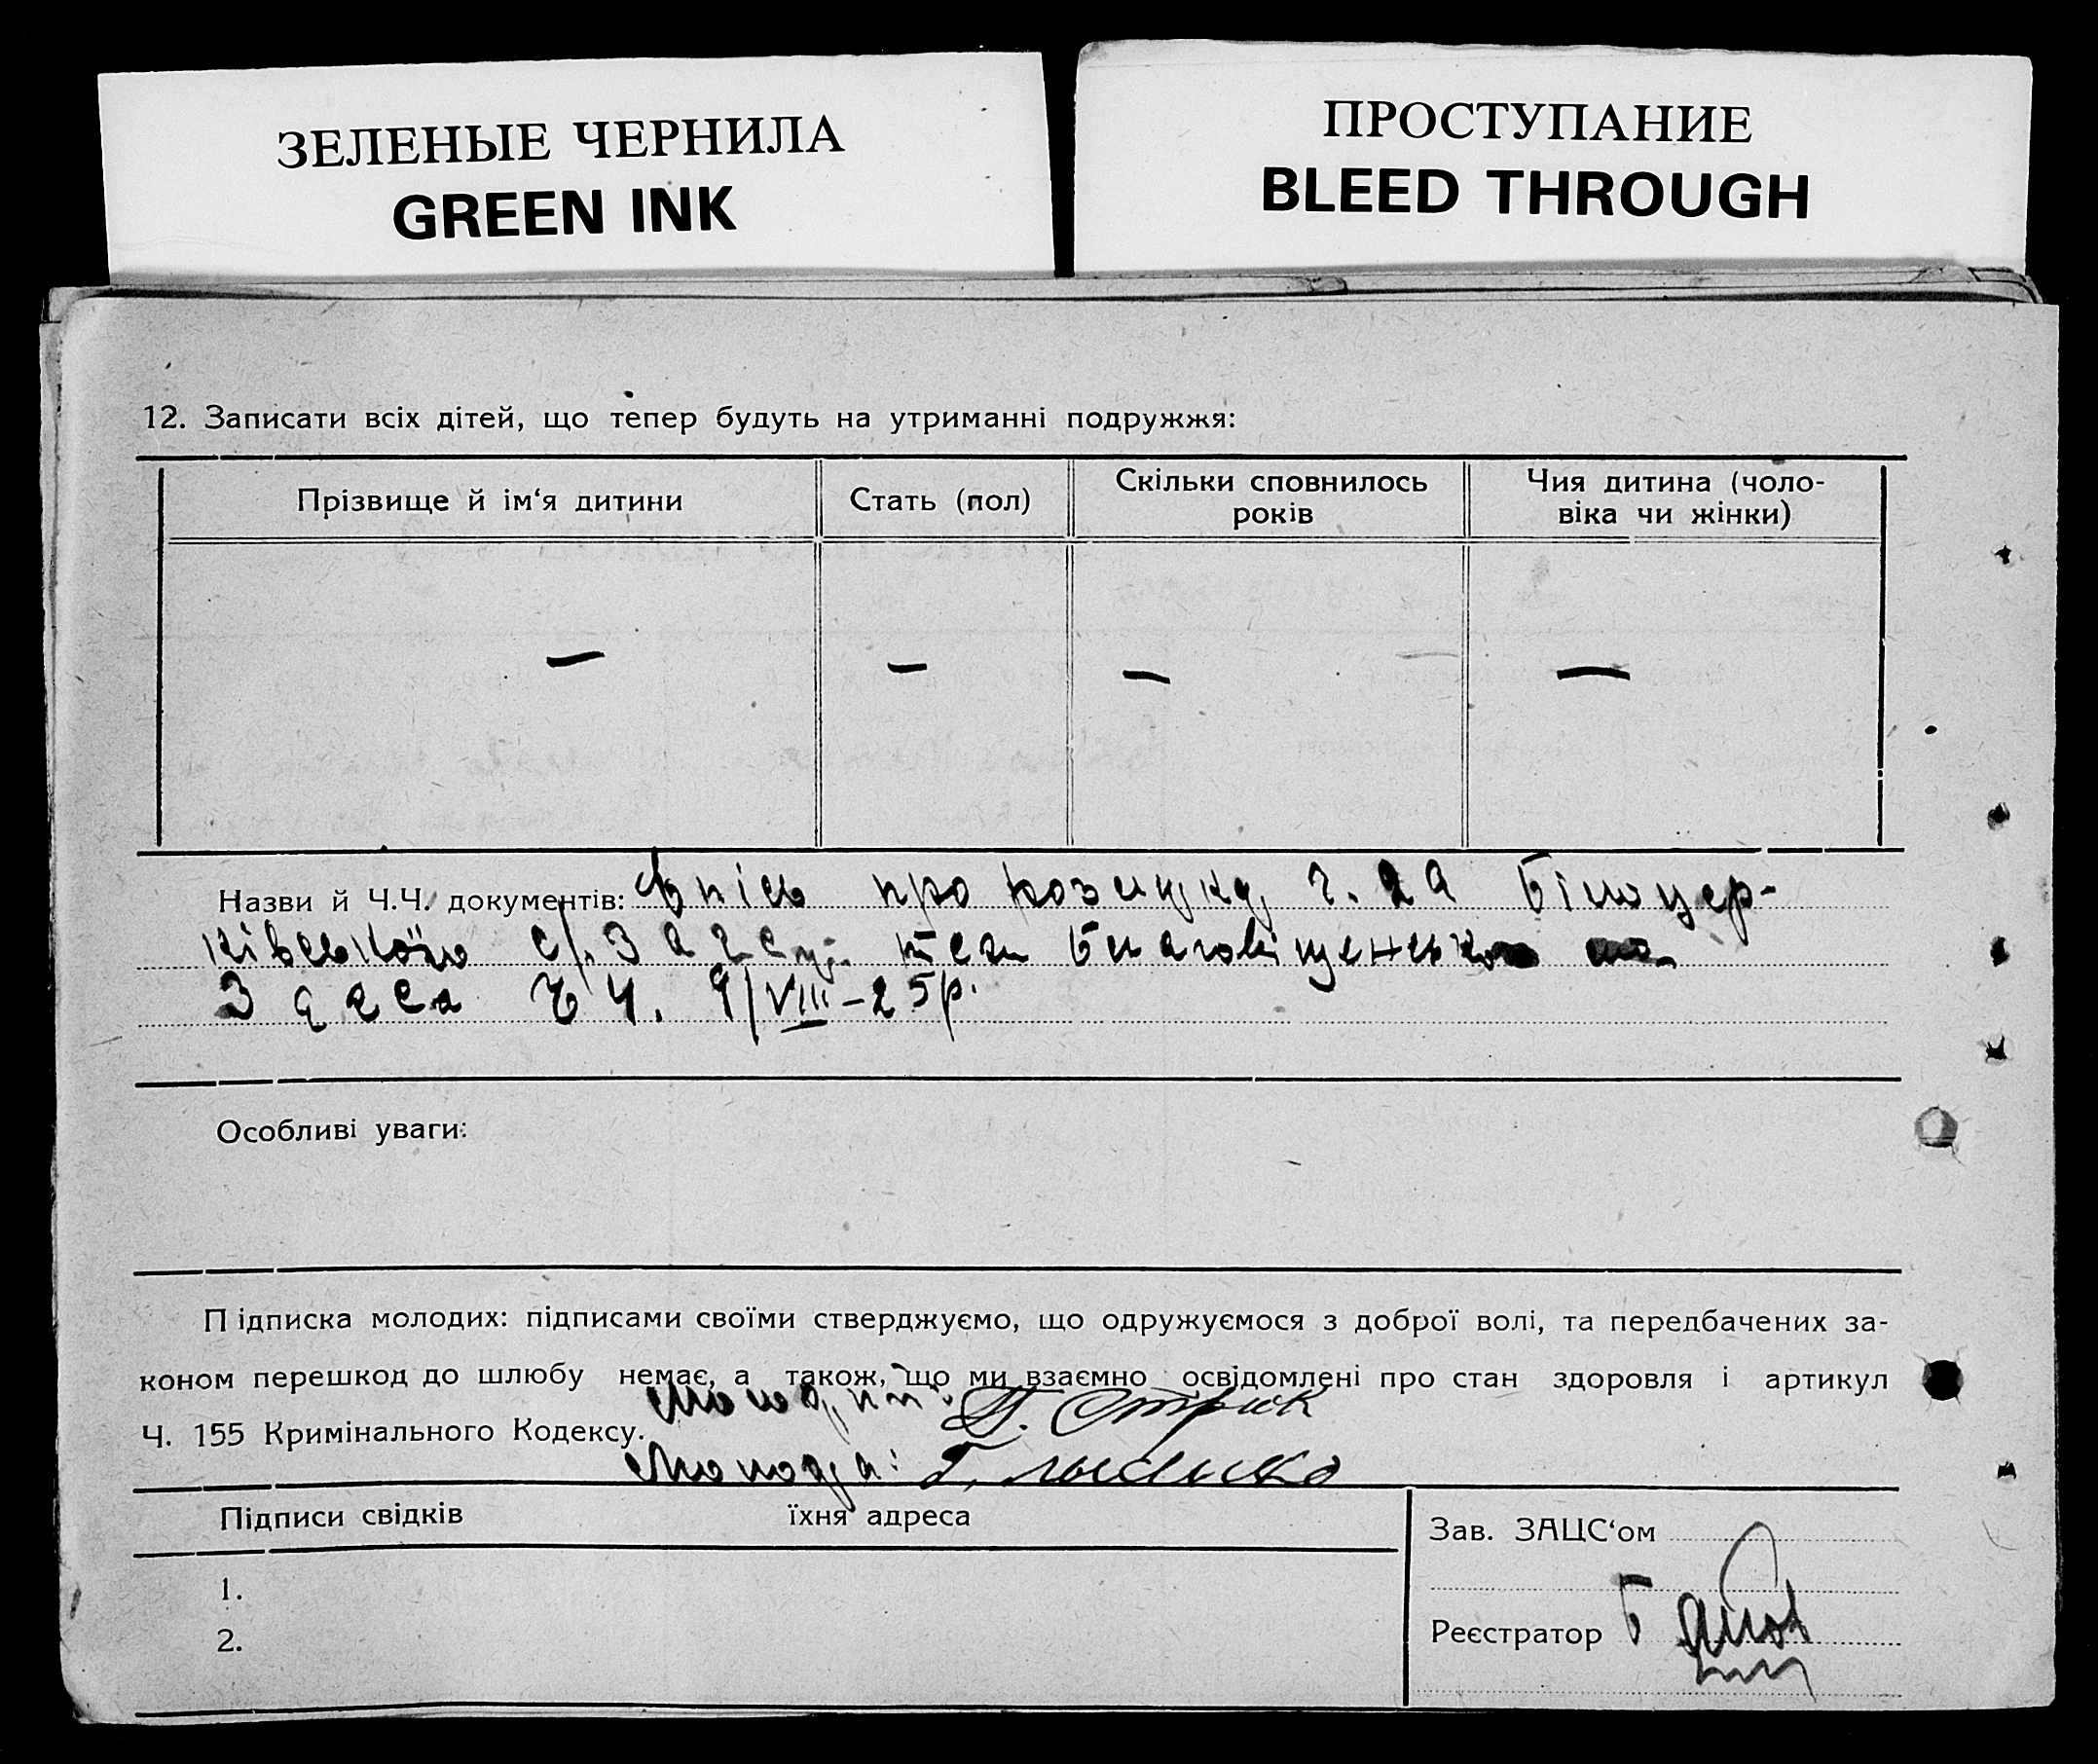 ЗЕЛЕНЫЕ ЧЕРНИЛА
GREEN INK
ПРОСТУПАНИЕ
BLEED THROUGH
12. Записати всіх дітей, що тепер будуть на утриманні подружжя:
Прізвище й ім‘я дитини
Стать (пол)
Скільки сповнилось
років
Чия дитина (чоло-
віка чи жінки)
— — — —
Назви й Ч.Ч. документів: про ч. Білоцер-
ківської
9/VIII–25р.
Особливі уваги:
Підписка молодих: підписами своїми стверджуємо, що одружуємося з доброї волі, та передбачених за-
коном перешкод до шлюбу немає, а також, що ми взаємно освідомлені про стан здоровля і артикул
Ч. 155 Кримінального Кодексу.
Молодий: П. Стрюк
Молода: Г.
Підписи свідків їхня адреса
1.
2.
Зав. ЗАЦС‘ом
Реєстратор